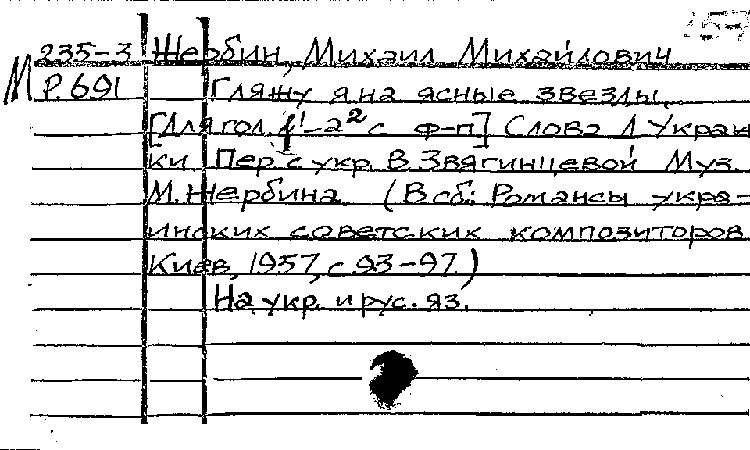 235-3 Жербин, Михаил Михайлович
М Р.691 Гляжу я на ясные звезды.
[Для гол. f¹-a² с ф-п] Слова Л. Украин
ки Пер. с укр. В. Звягинцевой Муз.
М. Жербина. (В сб.: Романсы укра-
инских советских композиторов.
Киев, 1957, с. 93-97.)
На укр. и рус. яз.